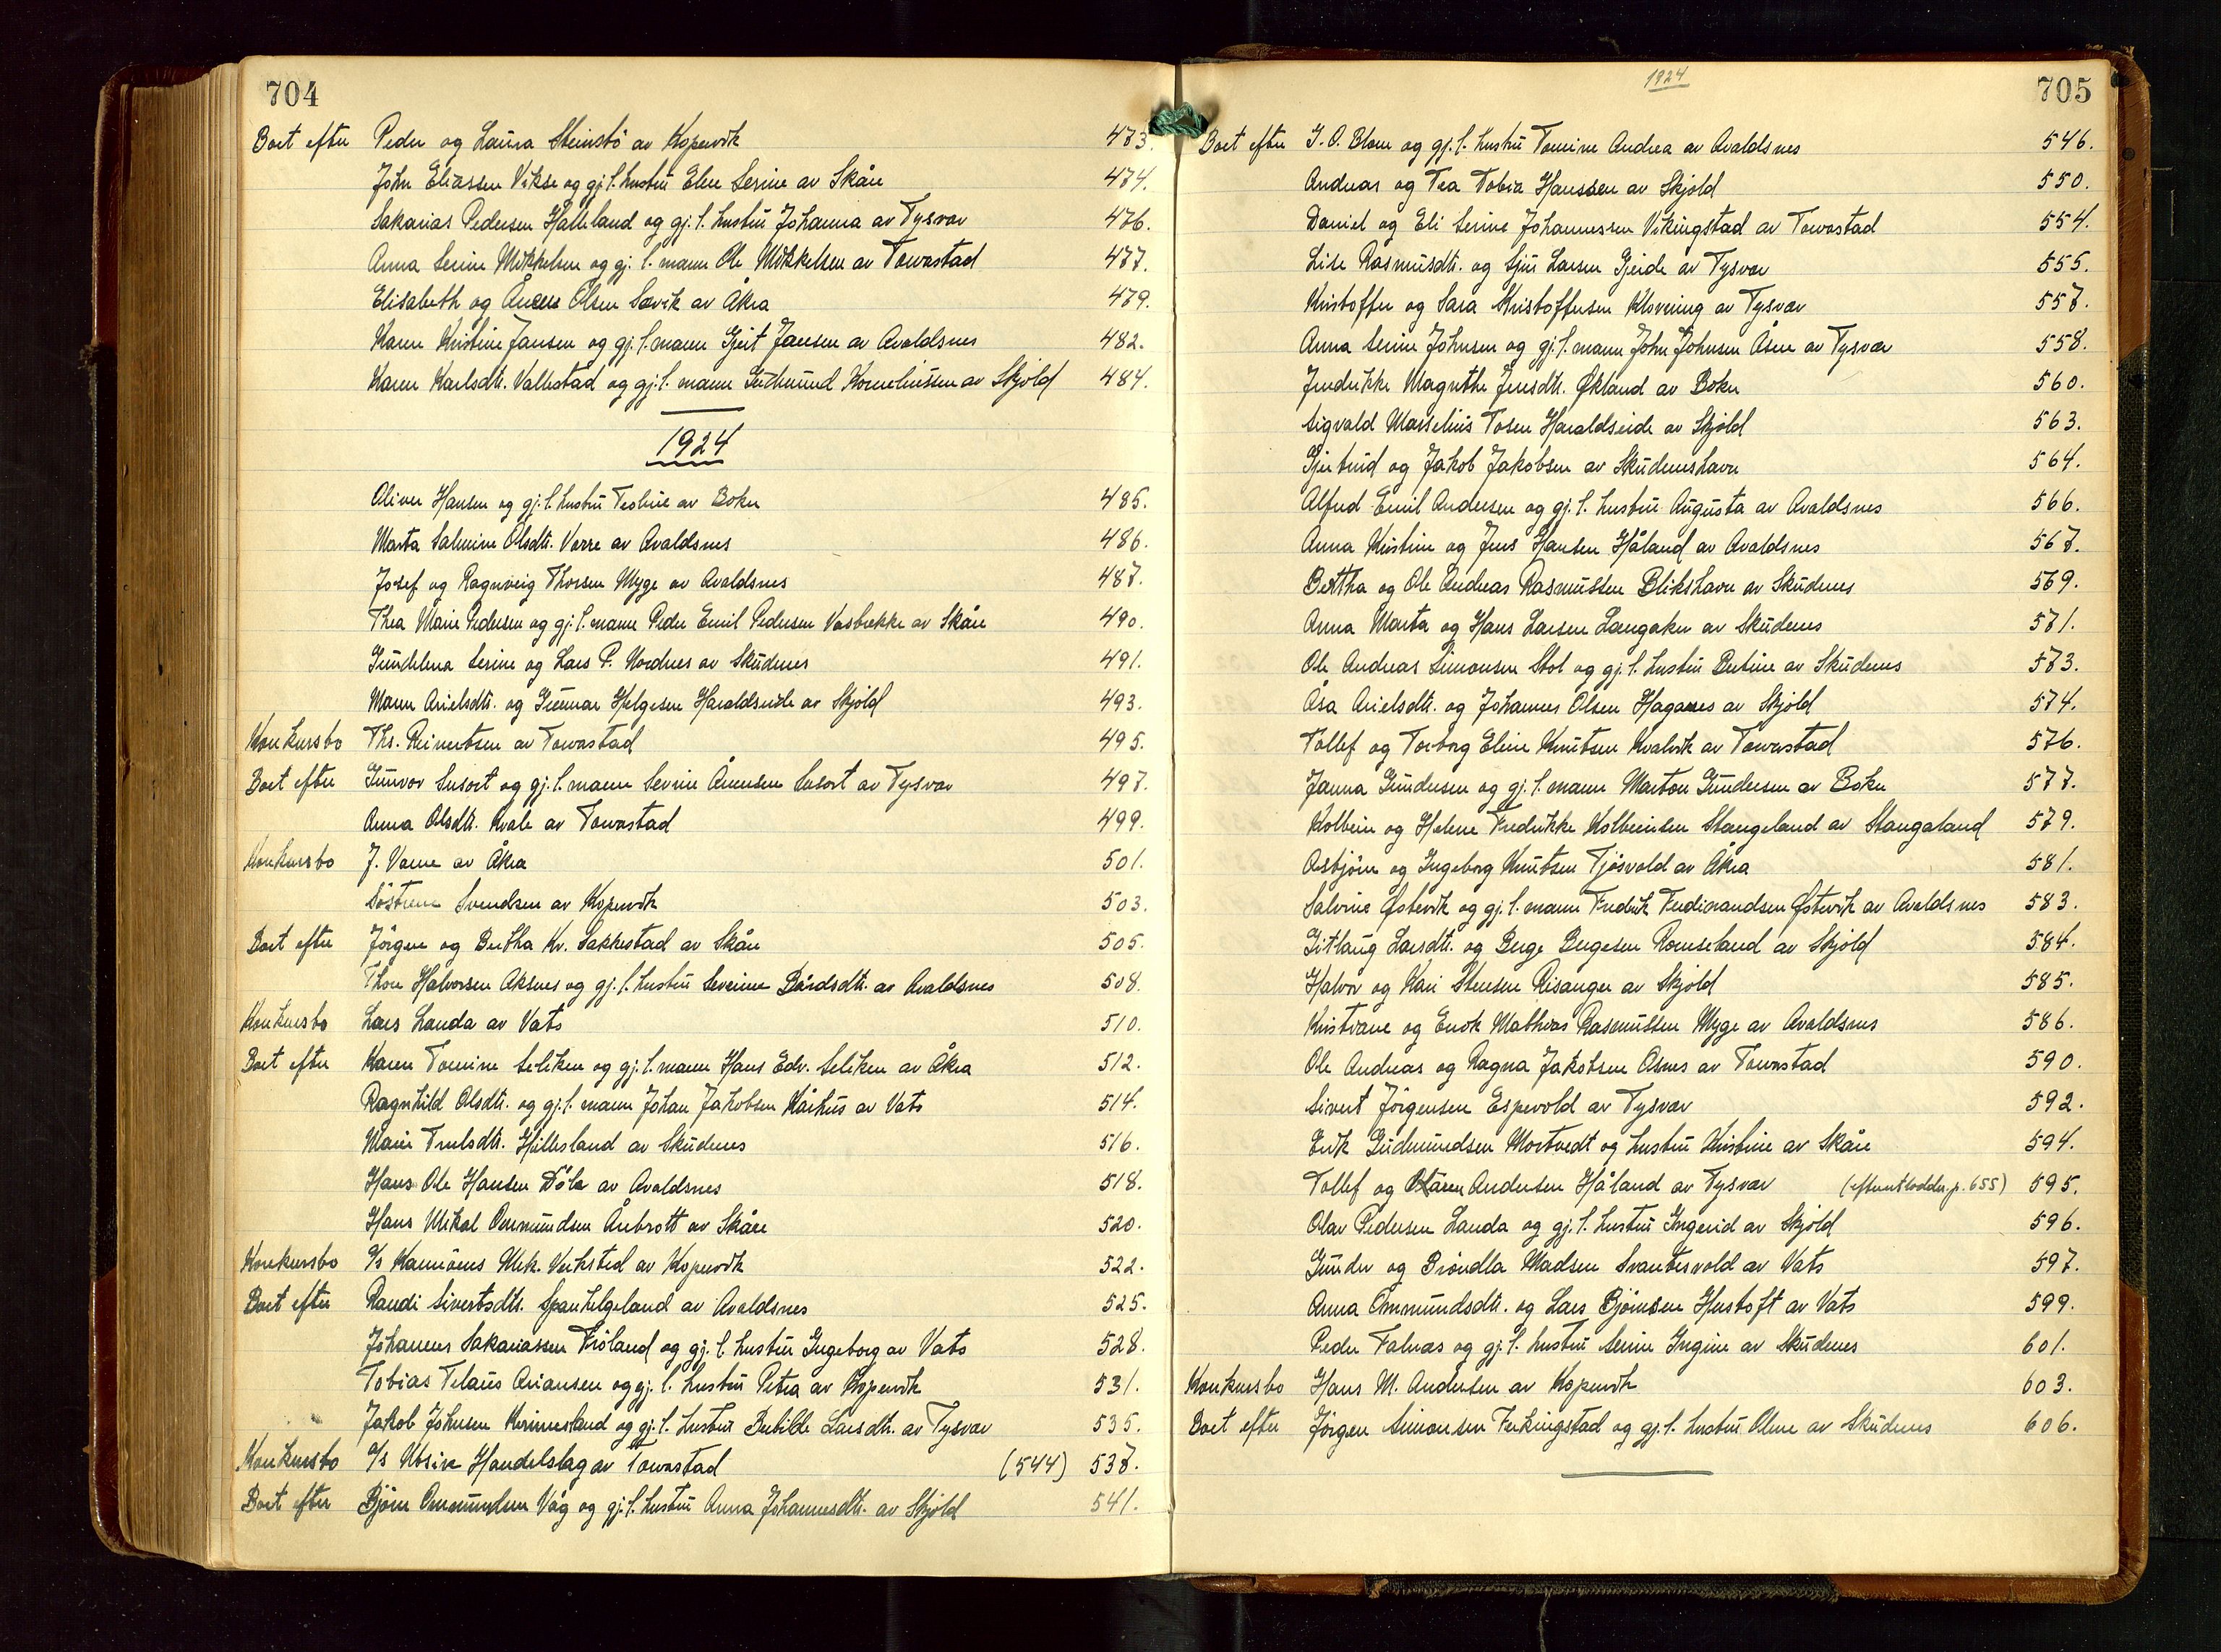 704
Boet efter Peder og Laura Steinsbö av Kopervik 473.
John Eliassen Vikse og gj. l. hustru Elen Serine av Skåre 474.
Sakarias Pedersen Halleland og gj. l. hustru Johanna av Tysvær 476.
Anna Serine Mikkelsen og gj. l. mann Ole Mikkelsen av Torvastad 477.
Elisabeth og Ånen Olsen Sævik av Åkra 479.
Karen Kristine Jansen og gj. l. mann Gjert Jansen av Avaldsnes 482.
Karen Karlsdtr. Vallestad og gj. l. mann Gudmund Korneliussen av Skjold 484.
1924
Oliver Hansen og gj. l. hustru Teoline av Boken 485.
Marta Salmine Olsdtr. Vorre av Avaldsnes 486.
Josef og Ragnveig Thorsen Myge av Avaldsnes 487.
Thea Marie Pedersen og gj. l. mann Peder Emil Pedersen Vasbrekke av Skåre 490.
Gundelena Serine og Lars P. Nordnes av Skudenes 491.
Maren Arielsdtr. og Gunnar Helgesen Haraldseide av Skjold 493.
Konkursbo Ths. Reinertsen av Torvastad 495.
Boet efter Gunvor Susort og gj. l. mann Sevrin Ånensen Susort av Tysvær 497.
Anna Olsdtr. Kvale av Torvastad 499.
Konkursbo J. Varne av Åkra 501.
Söstrene Svendsen av Kopervik 503.
Boet efter Jörgen og Bertha Kr. Sakkestad av Skåre 505.
Thore Halvorsen Aksnes og gj. l. hustru Severine Bårdsdtr. av Avaldsnes 508.
Konkursbo Lars Landa av Vats 510.
Boet efter Karen Tomine Seliken og gj. l. mann Hans Edv. Seliken av Åkra 512.
Ragnhild Olsdtr. og gj. l. mann Johan Jakobsen Kårhus av Vats 514.
Marie Trulsdtr. Hillesland av Skudenes 516.
Hans Ole Hansen Döle av Avaldsnes 518.
Hans Mikal Ommundsen Årebrott av Skåre 520.
Konkursbo A/s Karmöens Mek. Verksted av Kopervik 522.
Boet efter Randi Sivertsdtr. Spanhelgeland av Avaldsnes 525.
Johannes Sakariassen Fröland og gj. l. hustru Ingeborg av Vats 528.
Tobias Telaus Ariansen og gj. l. hustru Petra av Kopervik 531.
Jakob Johnsen Kvinnesland og gj. l. hustru Berhilde Larsdtr. av Tysvær 535.
Konkursbo A/s Utsira Handelslag av Torvastad (544) 537.
Boet efter Bjørn Ommundsen Våg og gj. l. hustru Anna Johannesdtr. av Skjold 541.
1924
705
Boet efter J. O. Blom og gj. l. hustru Tomine Andrea av Avaldsnes 546.
Andreas og Tea Tobia Hanssen av Skjold 550.
Daniel og Eli Serine Johannessen Vikingstad av Torvastad 554.
Lise Rasmusdtr. og Sjur Larsen Gjeide av Tysvær 555.
Kristoffer og Sara Kristoffersen Klovning av Tysvær 557.
Anna Serine Johnsen og gj. l. mann John Johnsen Åsen av Tysvær 558.
Fredrikke Magrethe Jensdtr. Økland av Boken 560.
Sigvald Marselius Tosen Haraldseide av Skjold 563.
Gjertrud og Jakob Jakobsen av Skudeneshavn 564.
Alfred Emil Andersen og gj. l. hustru Augusta av Avaldsnes 566.
Anna Kristine og Jens Hansen Håland av Avaldsnes 567.
Bertha og Ole Andreas Rasmussen Blikshavn av Skudenes 569.
Anna Marta og Hans Larsen Langaker av Skudenes 571.
Ole Andreas Simonsen Stol og gj. l. hustru Bertine av Skudenes 573.
Åsa Arielsdtr. og Johannes Olsen Haganes av Skjold 574.
Tollef og Torborg Eline Knutsen Kvalvik av Torvastad 576.
Janna Gundersen og gj. l. mann Marton Gundersen av Boken 577.
Kolbein og Helene Fredrikke Kolbeinsen Stangeland av Stangaland 579.
Asbjörn og Ingeborg Knutsen Tjösvold av Åkra 581.
Salvine Østevik og gj. l. mann Fredrik Ferdinandsen Østevik av Avaldsnes 583.
Gitlaug Larsdtr. og Berge Bergesen Romseland av Skjold 584.
Halvor og Kari Stensen Risanger av Skjold 585.
Kristiane og Enok Mathias Rasmussen Myge av Avaldsnes 586.
Ole Andreas og Ragna Jakobsen Osnes av Torvastad 590.
Sivert Jörgensen Espevold av Tysvær 592.
Erik Gudmundsen Mortvedt og hustru Kristine av Skåre 594.
Tollef og Karen Andersen Håland av Tysvær (efterutlodder. p. 655) 595.
Olav Pedersen Landa og gj. l. hustru Ingerid av Skjold 596.
Gunder og Bröndla Madsen Svantesvold av Vats 597.
Anna Ommundsdtr. og Lars Bjørnsen Hustoft av Vats 599.
Peder Falnæs og gj. l. hustru Serine Ingine av Skudenes 601.
Konkursbo Hans M. Andersen av Kopervik 603.
Boet efter Jörgen Simonsen Ferkingstad og gj. l. hustru Oline av Skudenes 606.